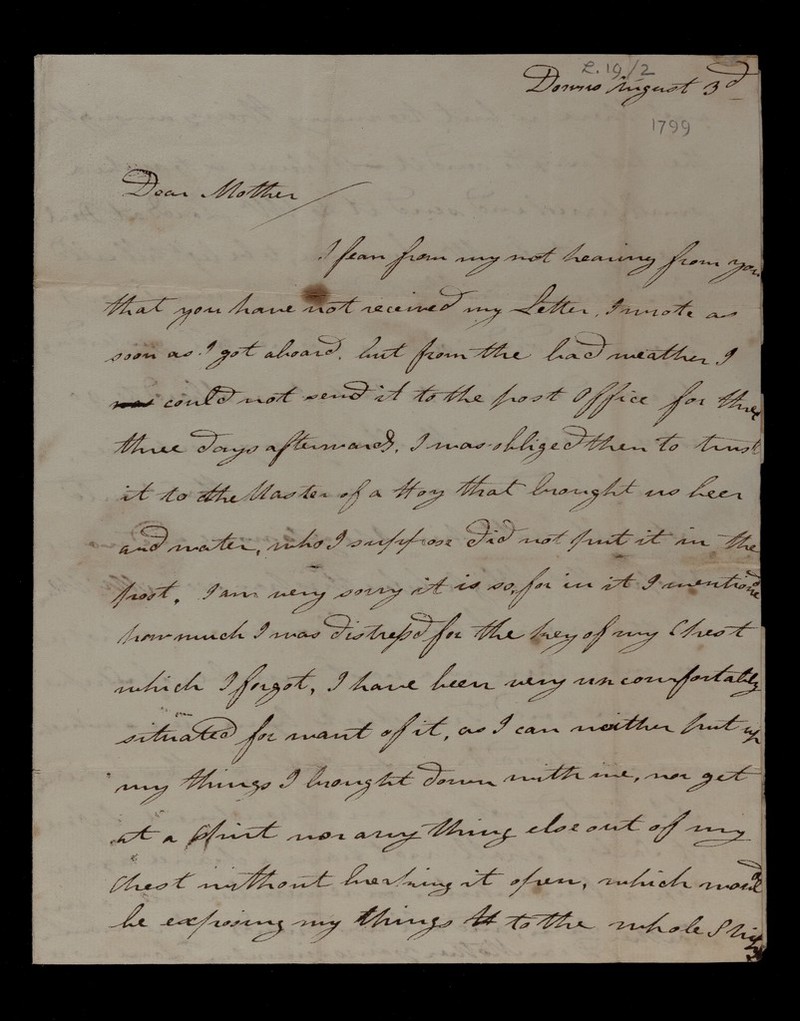 L.19/2
Downs August 3d
1799
Dear Mother
I fear from my not hearing from you
that you have not received my Letter, I wrote as
soon as I got aboard, but from the bad weather I
was could not send it to the post Office for three
three days afterwards, I was obliged then to trust
it to the Master of a Hoy that brought us beer
and water, who I suppose did not put it in the
post. I am very sorry it is so, for in it I mentioned
how much I was distress'd for the key of my Chest
which I forgot, I have been very uncomfortably
situated for want of it, as I can neither put up
my things I brought down with me, nor get
at a Shirt nor any thing else out of my
Chest without breaking it open, which would
be exposing my things to the whole Ship